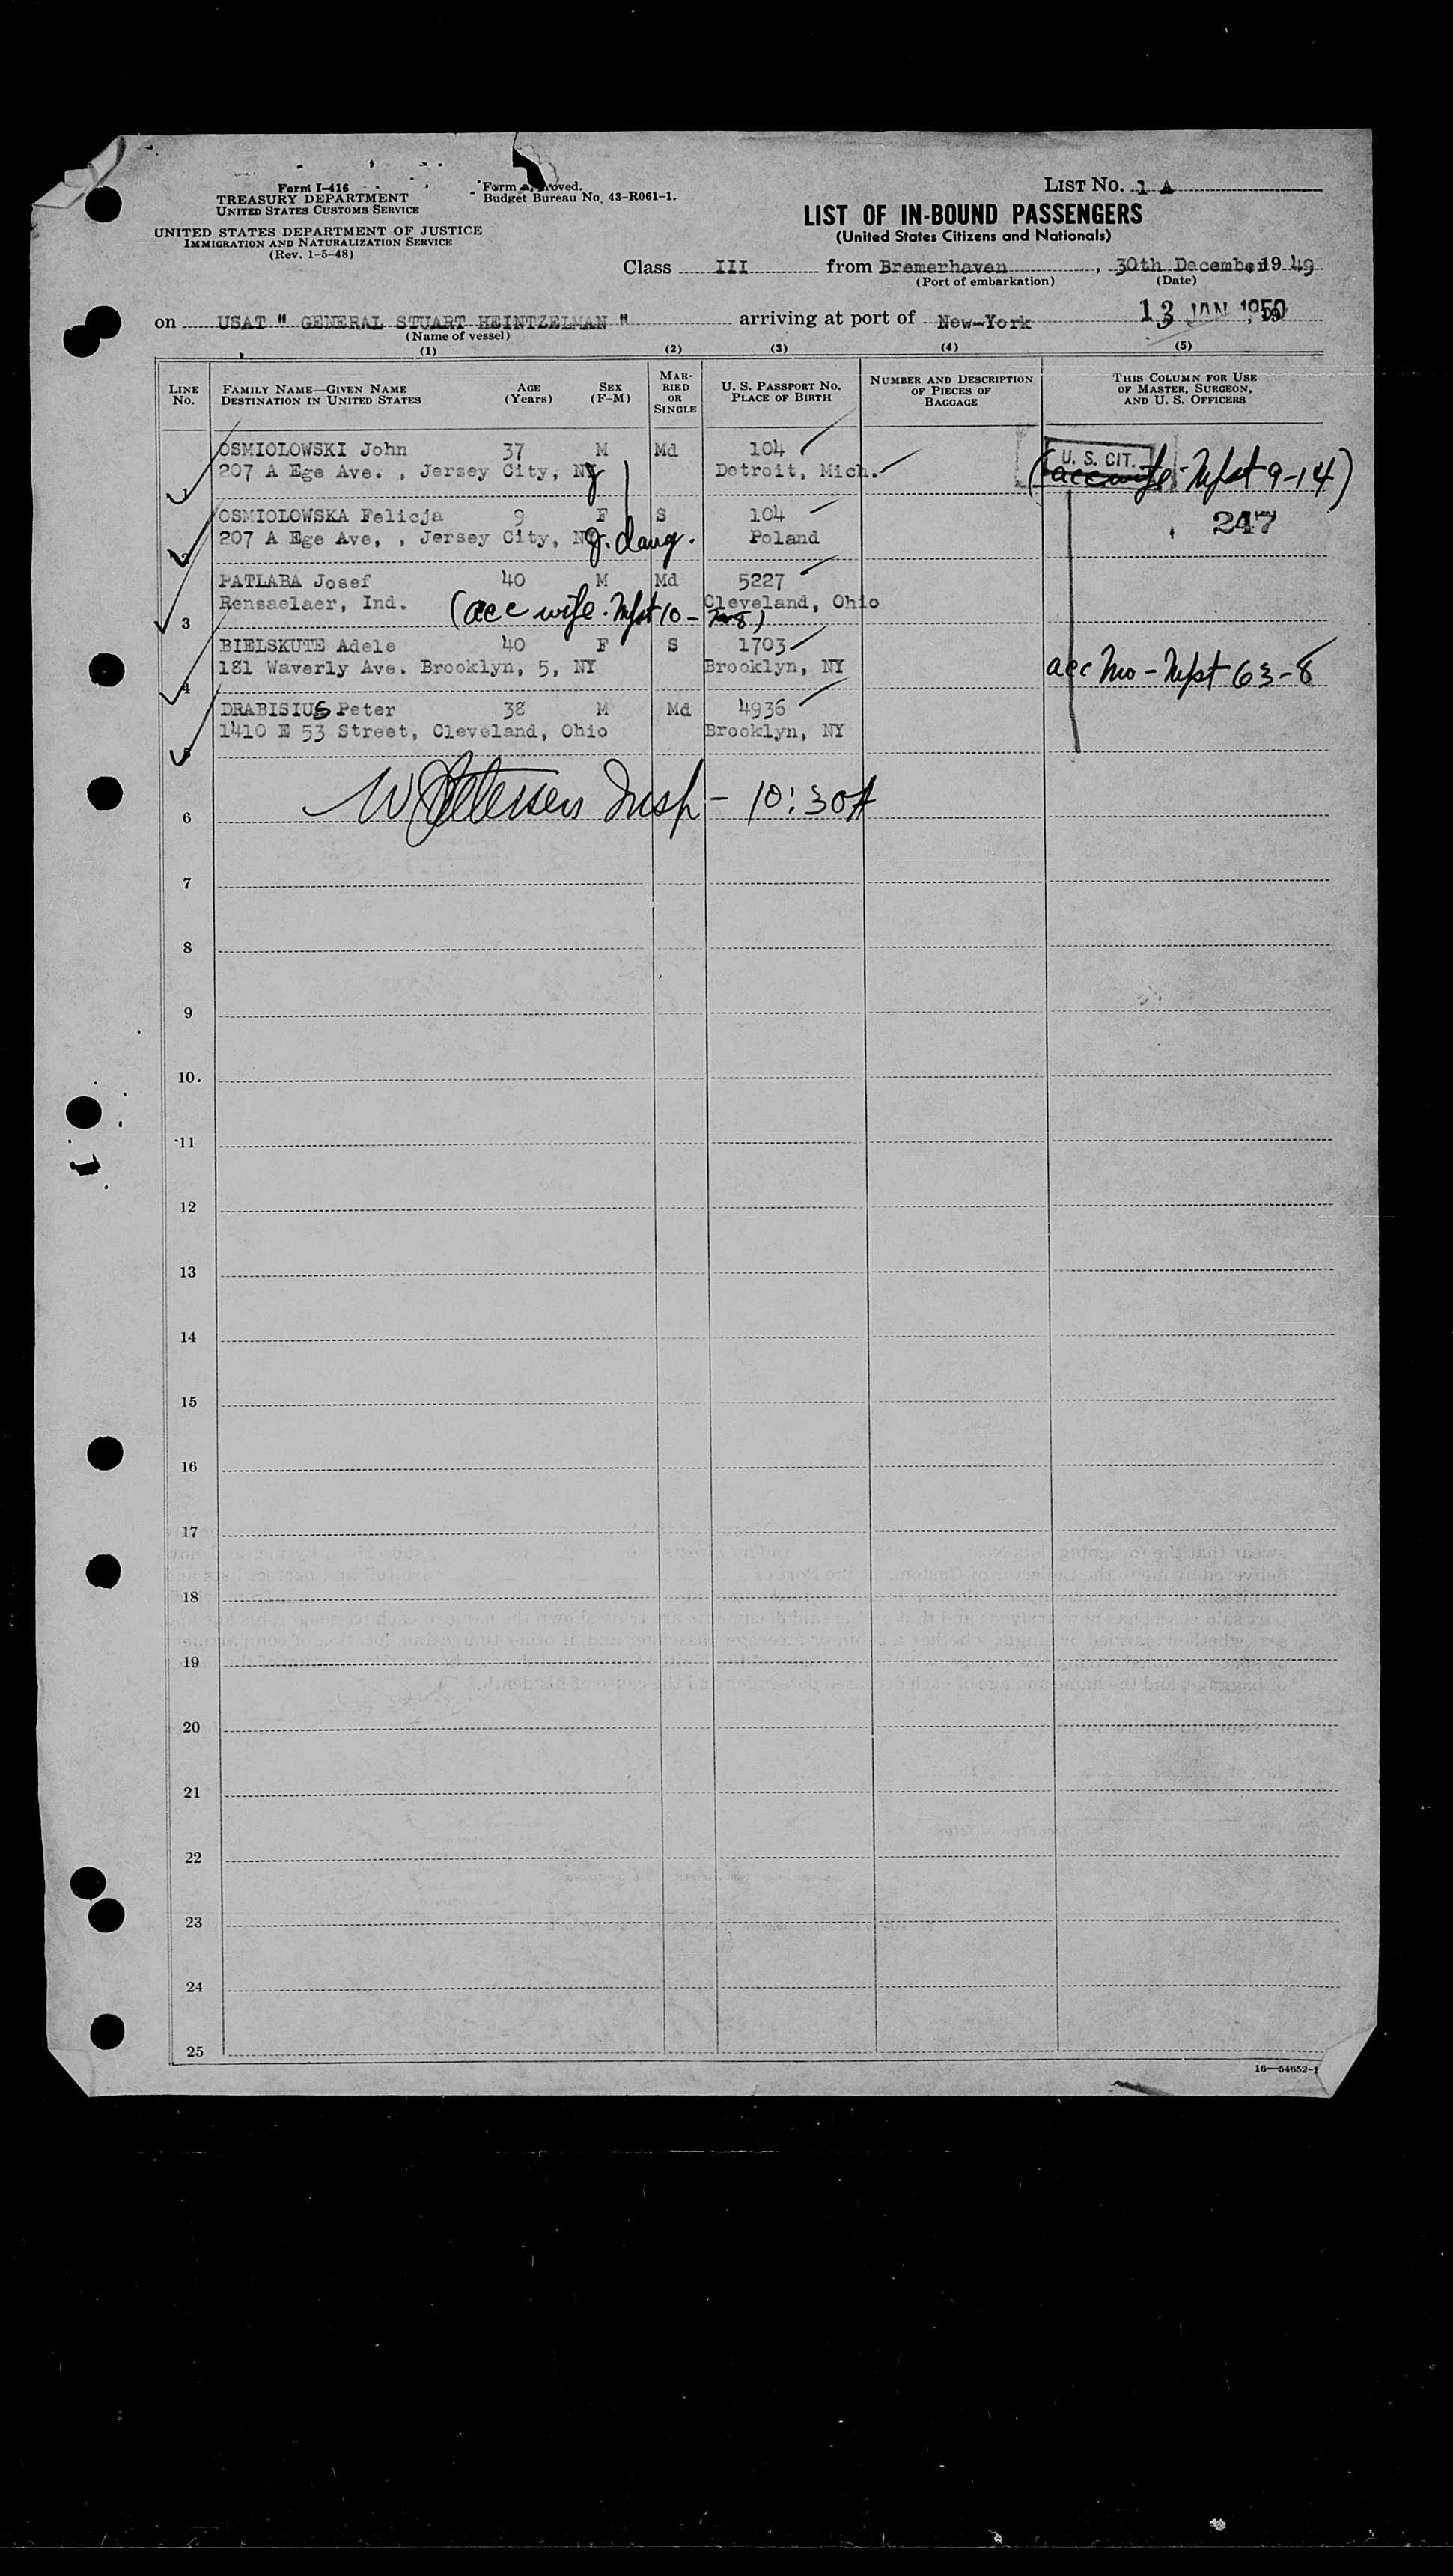 Form I-416
TREASURY DEPARTMENT
UNITED STATES CUSTOMS SERVICE
UNITED STATES DEPARTMENT OF JUSTICE
IMMIGRATION AND NATURALIZATION SERVICE
(Rev. 1-5-48)
Budget Bureau No. 43-R061-1.
LIST NO. 1 A
LIST OF IN-BOUND PASSENGERS
(United States Citizens and Nationals)
Class III from Bremerhaven, 30th December 1949
(Port of embarkation) (Date)
on USAT " GENERAL STUART HEINTZELMAN " arriving at port of New-York 13 JAN 1950
(Name of vessel)
(1) (2) (3) (4) (5)
LINE NO. FAMILY NAME—GIVEN NAME DESTINATION IN UNITED STATES AGE (Years) SEX (F-M) MARRIED OR SINGLE U. S. PASSPORT NO. PLACE OF BIRTH NUMBER AND DESCRIPTION OF PIECES OF BAGGAGE THIS COLUMN FOR USE OF MASTER, SURGEON, AND U. S. OFFICERS
OSMIOLOWSKI John 37 M Md 104 U. S. CIT.
1 207 A Ege Ave. , Jersey City, NJ Detroit, Mich. (acc wife - Mfst 9-14)
OSMIOLOWSKA Felicja 9 F S 104 247
2 207 A Ege Ave, , Jersey City, NJ. daug. Poland
PATLABA Josef 40 M Md 5227
3 Rensaelaer, Ind. (acc wife. Mfst 10 - 8) Cleveland, Ohio
BIELSKUTE Adele 40 F S 1703
4 181 Waverly Ave. Brooklyn, 5, NY Brooklyn, NY acc Mo - Mfst 63-8
DRABISIUS Peter 38 M Md 4936
5 1410 E 53 Street, Cleveland, Ohio Brooklyn, NY
6 Insp - 10:30A
7
8
9
10.
11
12
13
14
15
16
17
18
19
20
21
22
23
24
25
16—54652-1